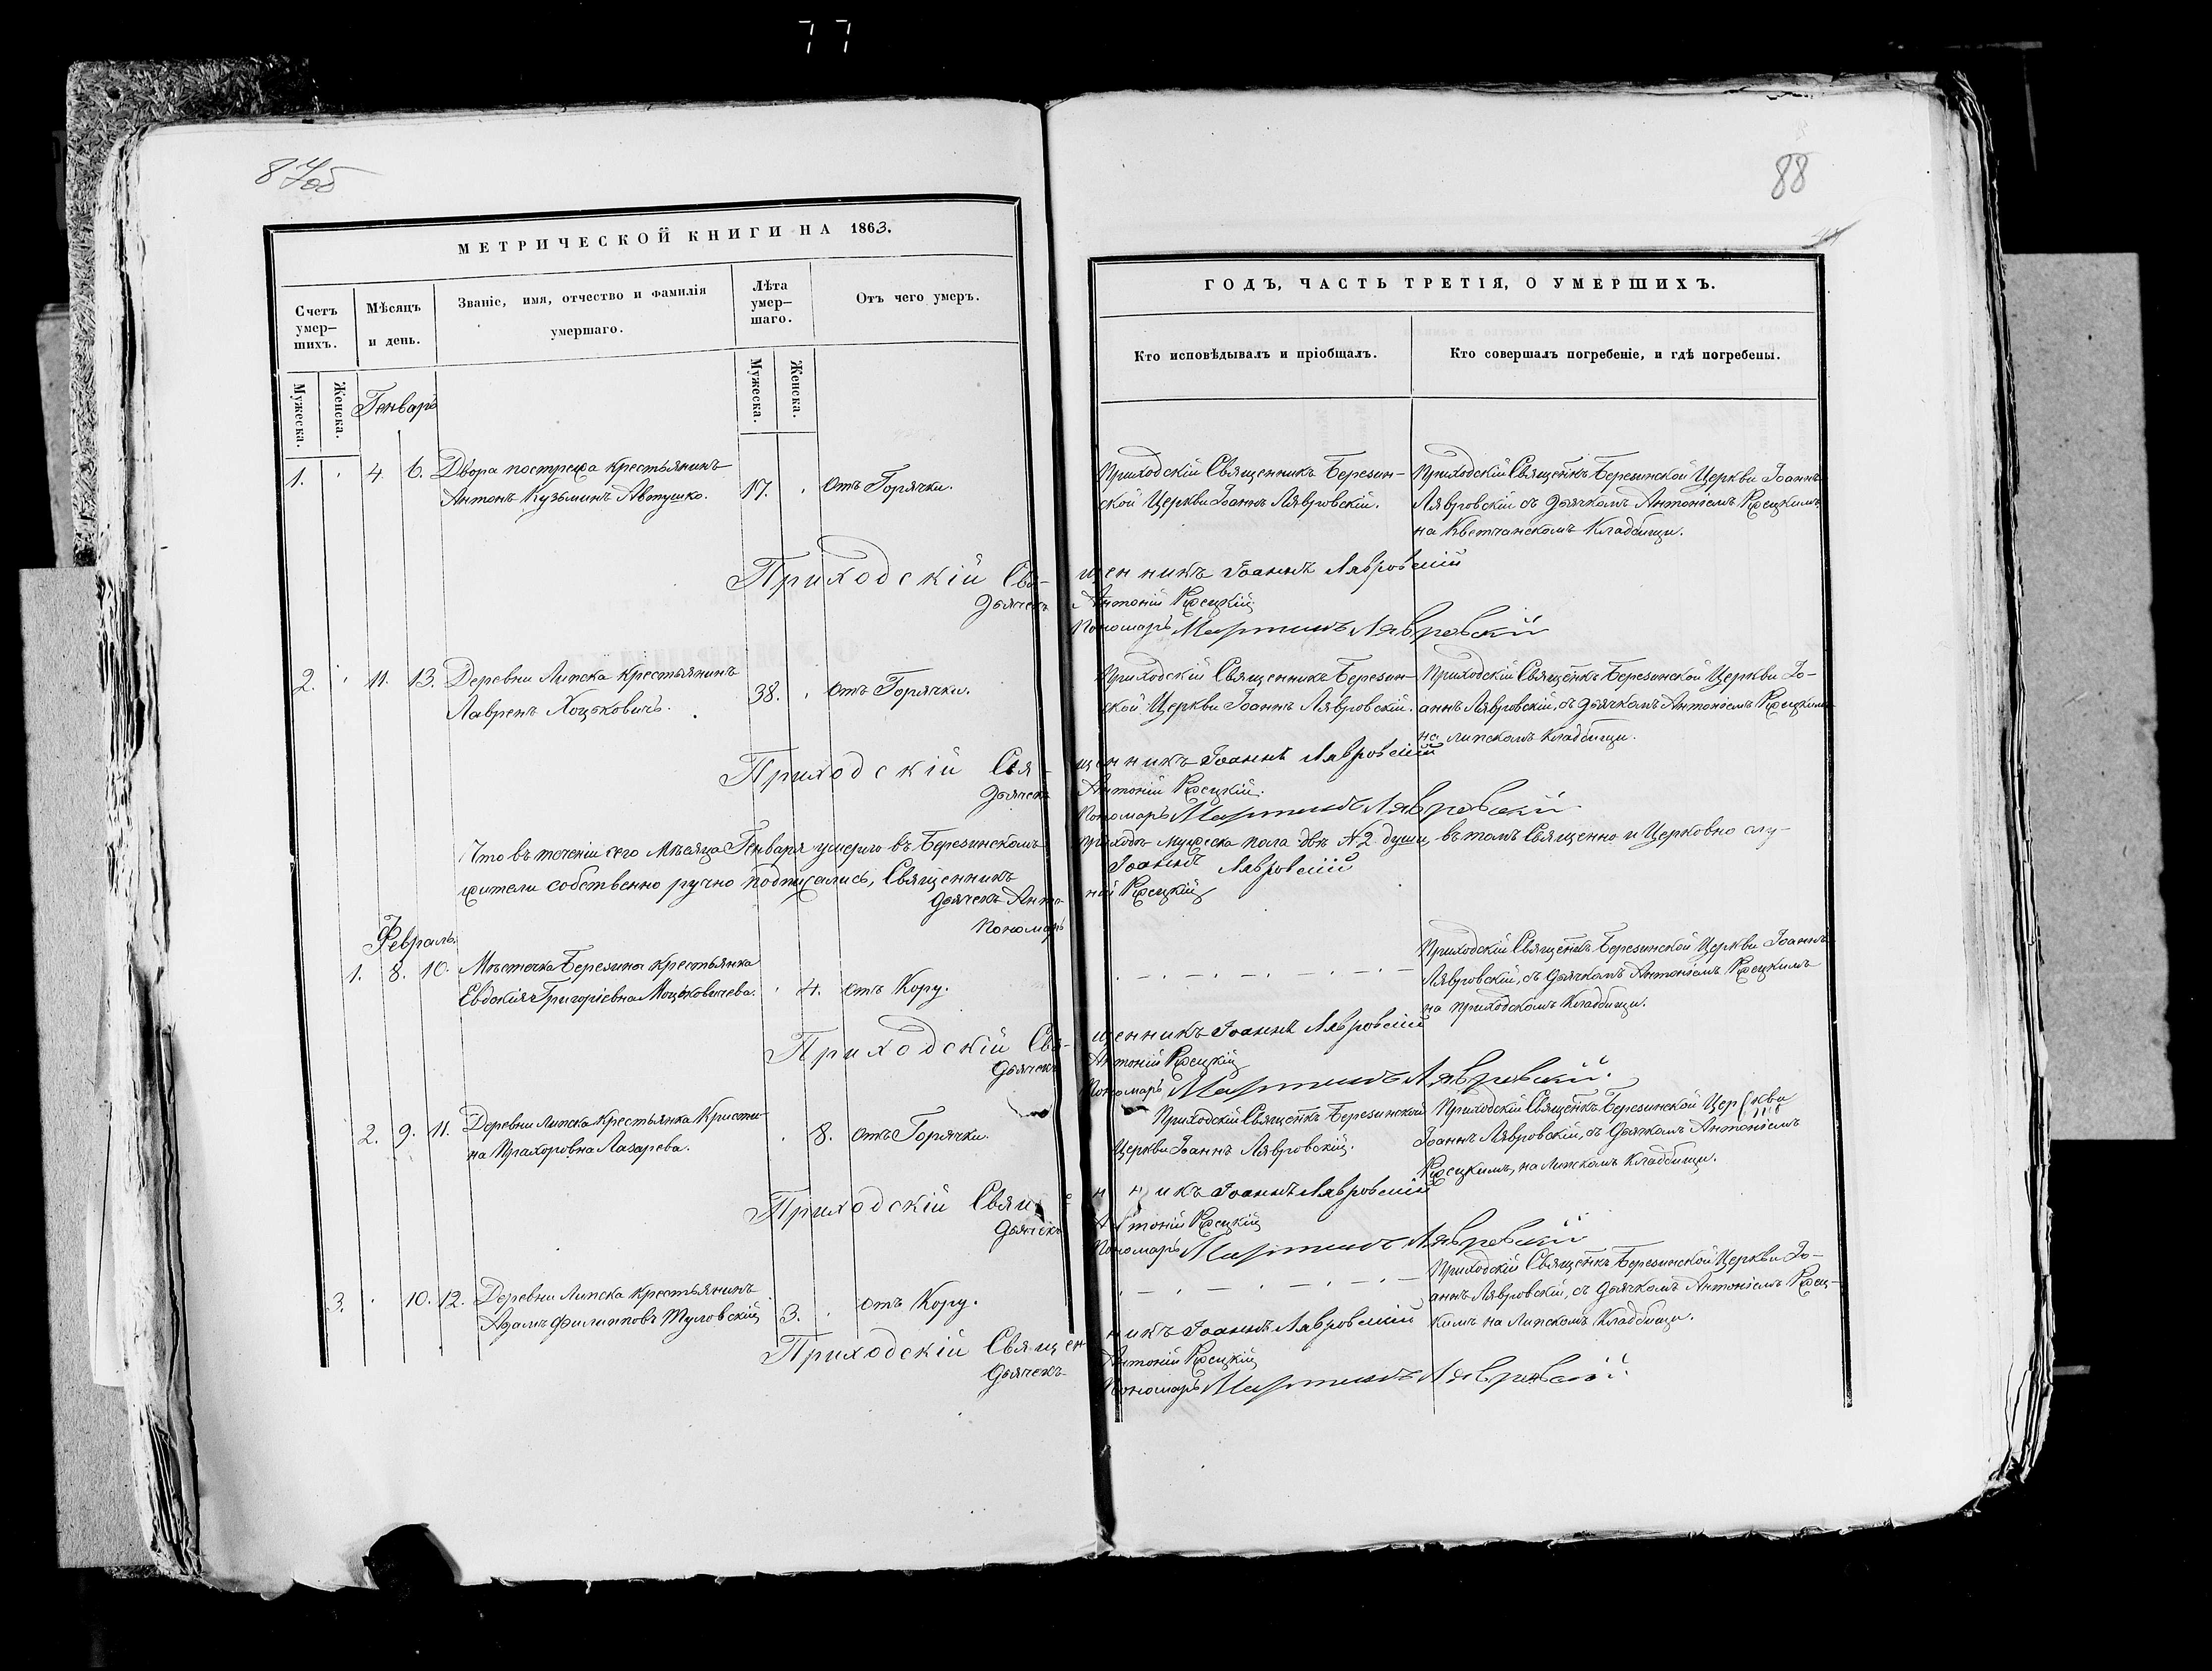 77
87об
88
МЕТРИЧЕСКОЙ КНИГИ НА 1863.
Счетъ умер-шихъ.
Мѣсяцъ и день.
Званіе, имя, отчество и фамилія умершаго.
Лѣта умер-шаго.
Отъ чего умеръ.
Мужеска.
Женска.
Мужеска.
Женска.
ГОДЪ, ЧАСТЬ ТРЕТІЯ, О УМЕРШИХЪ.
Кто исповѣдывалъ и пріобщалъ.
Кто совершалъ погребеніе, и гдѣ погребены.
Генварь
1. 4. 6. Двора крестьянинъ
Антонъ Кузьминъ Автушко.
17. отъ Горячки.
Приходскій Священникъ Березин-
ской Церкви Іоаннъ Лявровскій.
Приходскій Священкъ Березинской Церкви Іоаннъ
Лявровскій съ дьячкомъ Антоніемъ
на Кветчанскомъ Кладбищи.
Приходскій Священникъ Іоаннъ Лявровскій
Дьячекъ Антоній
Пономарь Мартинъ Лявровскій
2. 11. 13. Деревни Липска крестьянинъ
Лавренъ Хоцьковичъ.
38. отъ Горячки.
Приходскій Священникъ Березин-
ской Церкви Іоаннъ Лявровскій.
Приходскій Священкъ Березинской Церкви Іо-
аннъ Лявровскій, съ дьячкомъ Антоніемъ
на липскомъ Кладбищи.
Приходскій Священникъ Іоаннъ Лявровскій
Дьячекъ Антоній
Пономарь Мартинъ Лявровскій
Что въ теченіи сего Мѣсяца Генваря умерло въ Березинскомъ приходѣ мужеска пола двѣ №2 души, въ томъ Священно и Церковно слу-
жители собственно ручно подписались, Священникъ Іоаннъ Лявровскій
Дьячекъ Антоній
Пономарь
Февраль.
1. 8. 10. Мѣстечка Березина крестьянка
Евдокія Григоріевна Моцьковичева.
4. отъ Кору.
Приходскій Священкъ Березинской Церкви Іоаннъ
Лявровскій, съ дьячкомъ Антоніемъ
на приходскомъ Кладбищи.
Приходскій Священникъ Іоаннъ Лявровскій
Дьячекъ Антоній
Пономарь Мартинъ Лявровскій.
2. 9. 11. Деревни Липска Крестьянка Кристи-
на Прахоровна Лазарева.
8. отъ Горячки.
Приходскій Священкъ Березинской
Церкви Іоаннъ Лявровскій.
Приходскій Священкъ Березинской Церкви
Іоаннъ Лявровскій, съ дьячкомъ Антоніемъ
на Липскомъ Кладбищи.
Приходскій Священникъ Іоаннъ Лявровскій
Дьячекъ Антоній
Пономарь Мартинъ Лявровскій
3. 10. 12. Деревни Липска крестьянинъ
Адамъ Филипповъ Туловскій
3. отъ Кору.
Приходскій Священкъ Березинской Церкви Іо-
аннъ Лявровскій, съ дьячкомъ Антоніемъ
кимъ на Липскомъ Кладбищи.
Приходскій Священникъ Іоаннъ Лявровскій
Дьячекъ Антоній
Пономарь Мартинъ Лявровскій